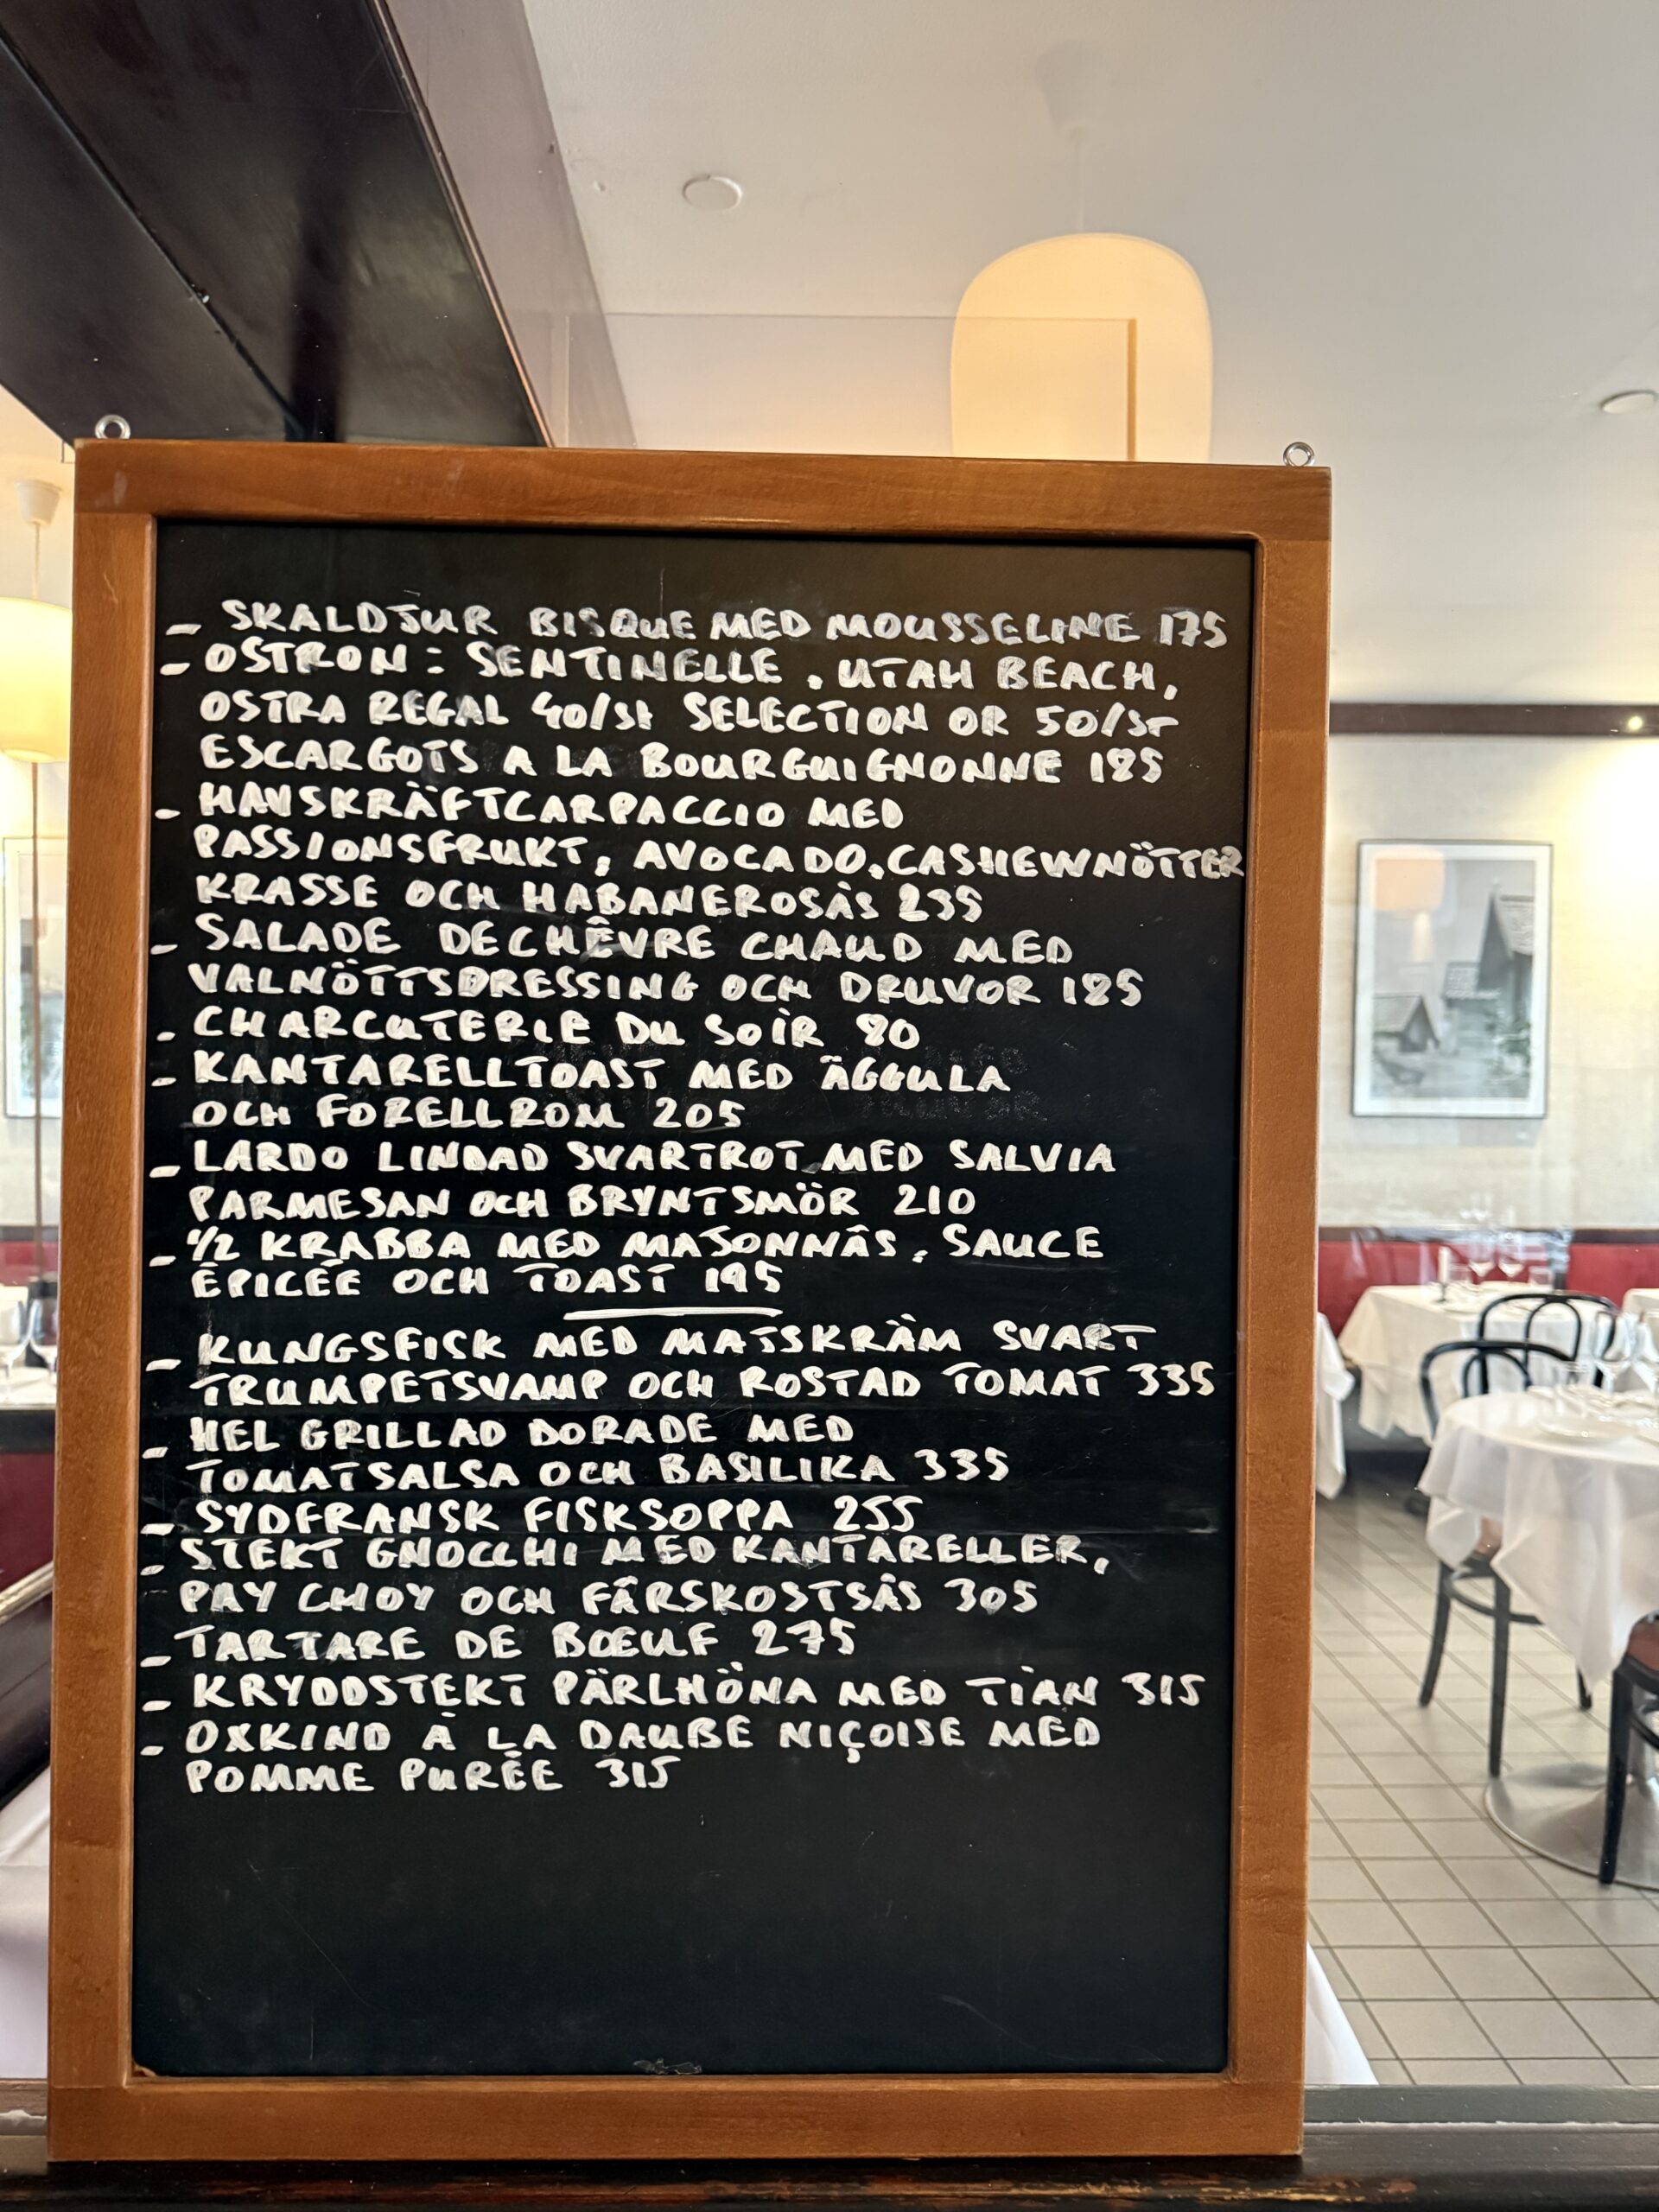 - SKALDJUR BISQUE MED MOUSSELINE 175
- OSTRON: SENTINELLE, UTAH BEACH,
OSTRA REGAL 40/St SELECTION OR 50/ST
ESCARGOTS A LA BOURGUIGNONNE 185
- HAVSKRÄFTCARPACCIO MED
PASSIONSFRUKT, AVOCADO, CASHEWNÖTTER
KRASSE OCH HABANEROSÅS 235
- SALADE DE CHÊVRE CHAUD MED
VALNÖTTSDRESSING OCH DRUVOR 185
- CHARCUTERIE DU SOIR 80
- KANTARELLTOAST MED ÄGGULA
OCH FORELLROM 205
- LARDO LINDAD SVARTROT MED SALVIA
PARMESAN OCH BRYNTSMÖR 210
- 1/2 KRABBA MED MAJONNÄS, SAUCE
ÉPICÉE OCH TOAST 195
- KUNGSFISK MED MAJSKRÄM SVART
TRUMPETSVAMP OCH ROSTAD TOMAT 335
- HEL GRILLAD DORADE MED
TOMATSALSA OCH BASILIKA 335
- SYDFRANSK FISKSOPPA 255
- STEKT GNOCCHI MED KANTARELLER,
PAY CHOY OCH FÄRSKOSTSÅS 305
- TARTARE DE BŒUF 275
- KRYDDSTEKT PÄRLHÖNA MED TIAN 315
- OXKIND À LA DAUBE NIÇOISE MED
POMME PURÉE 315